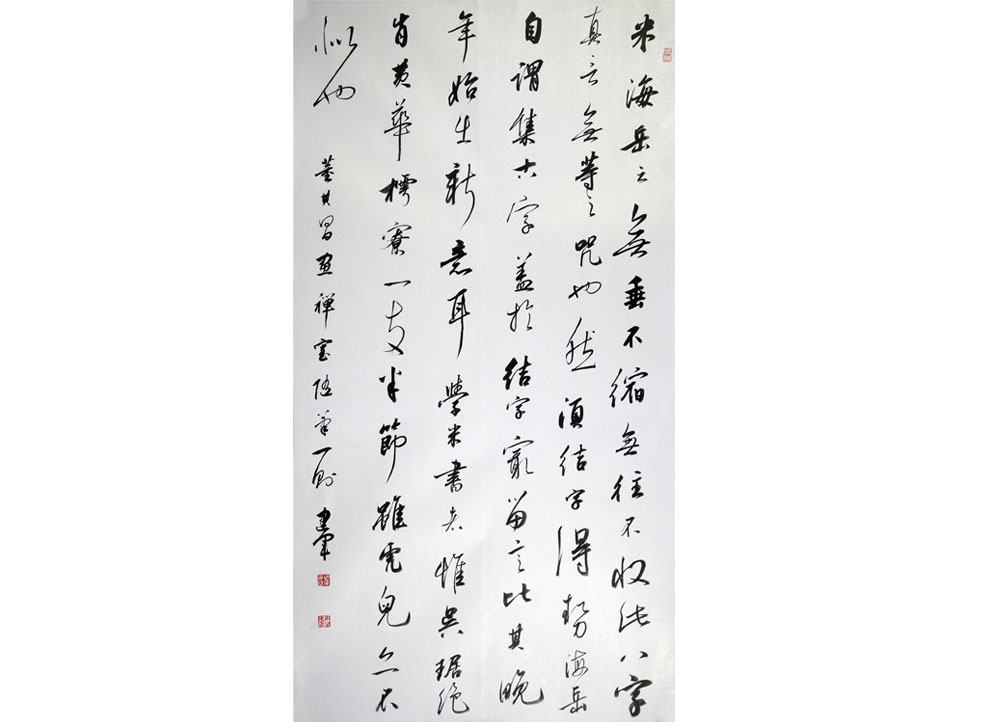 米海岳云無垂不縮無往不收此八字
真言無等之咒也然須結字得勢海岳
自謂集古字蓋於結字最留意比其晚
年始出新意耳學米書者惟吳琚絕
肖黃華樗寮一支半節雖虎兒亦不
似也
董其昌畫禪室隨筆一則 建軍